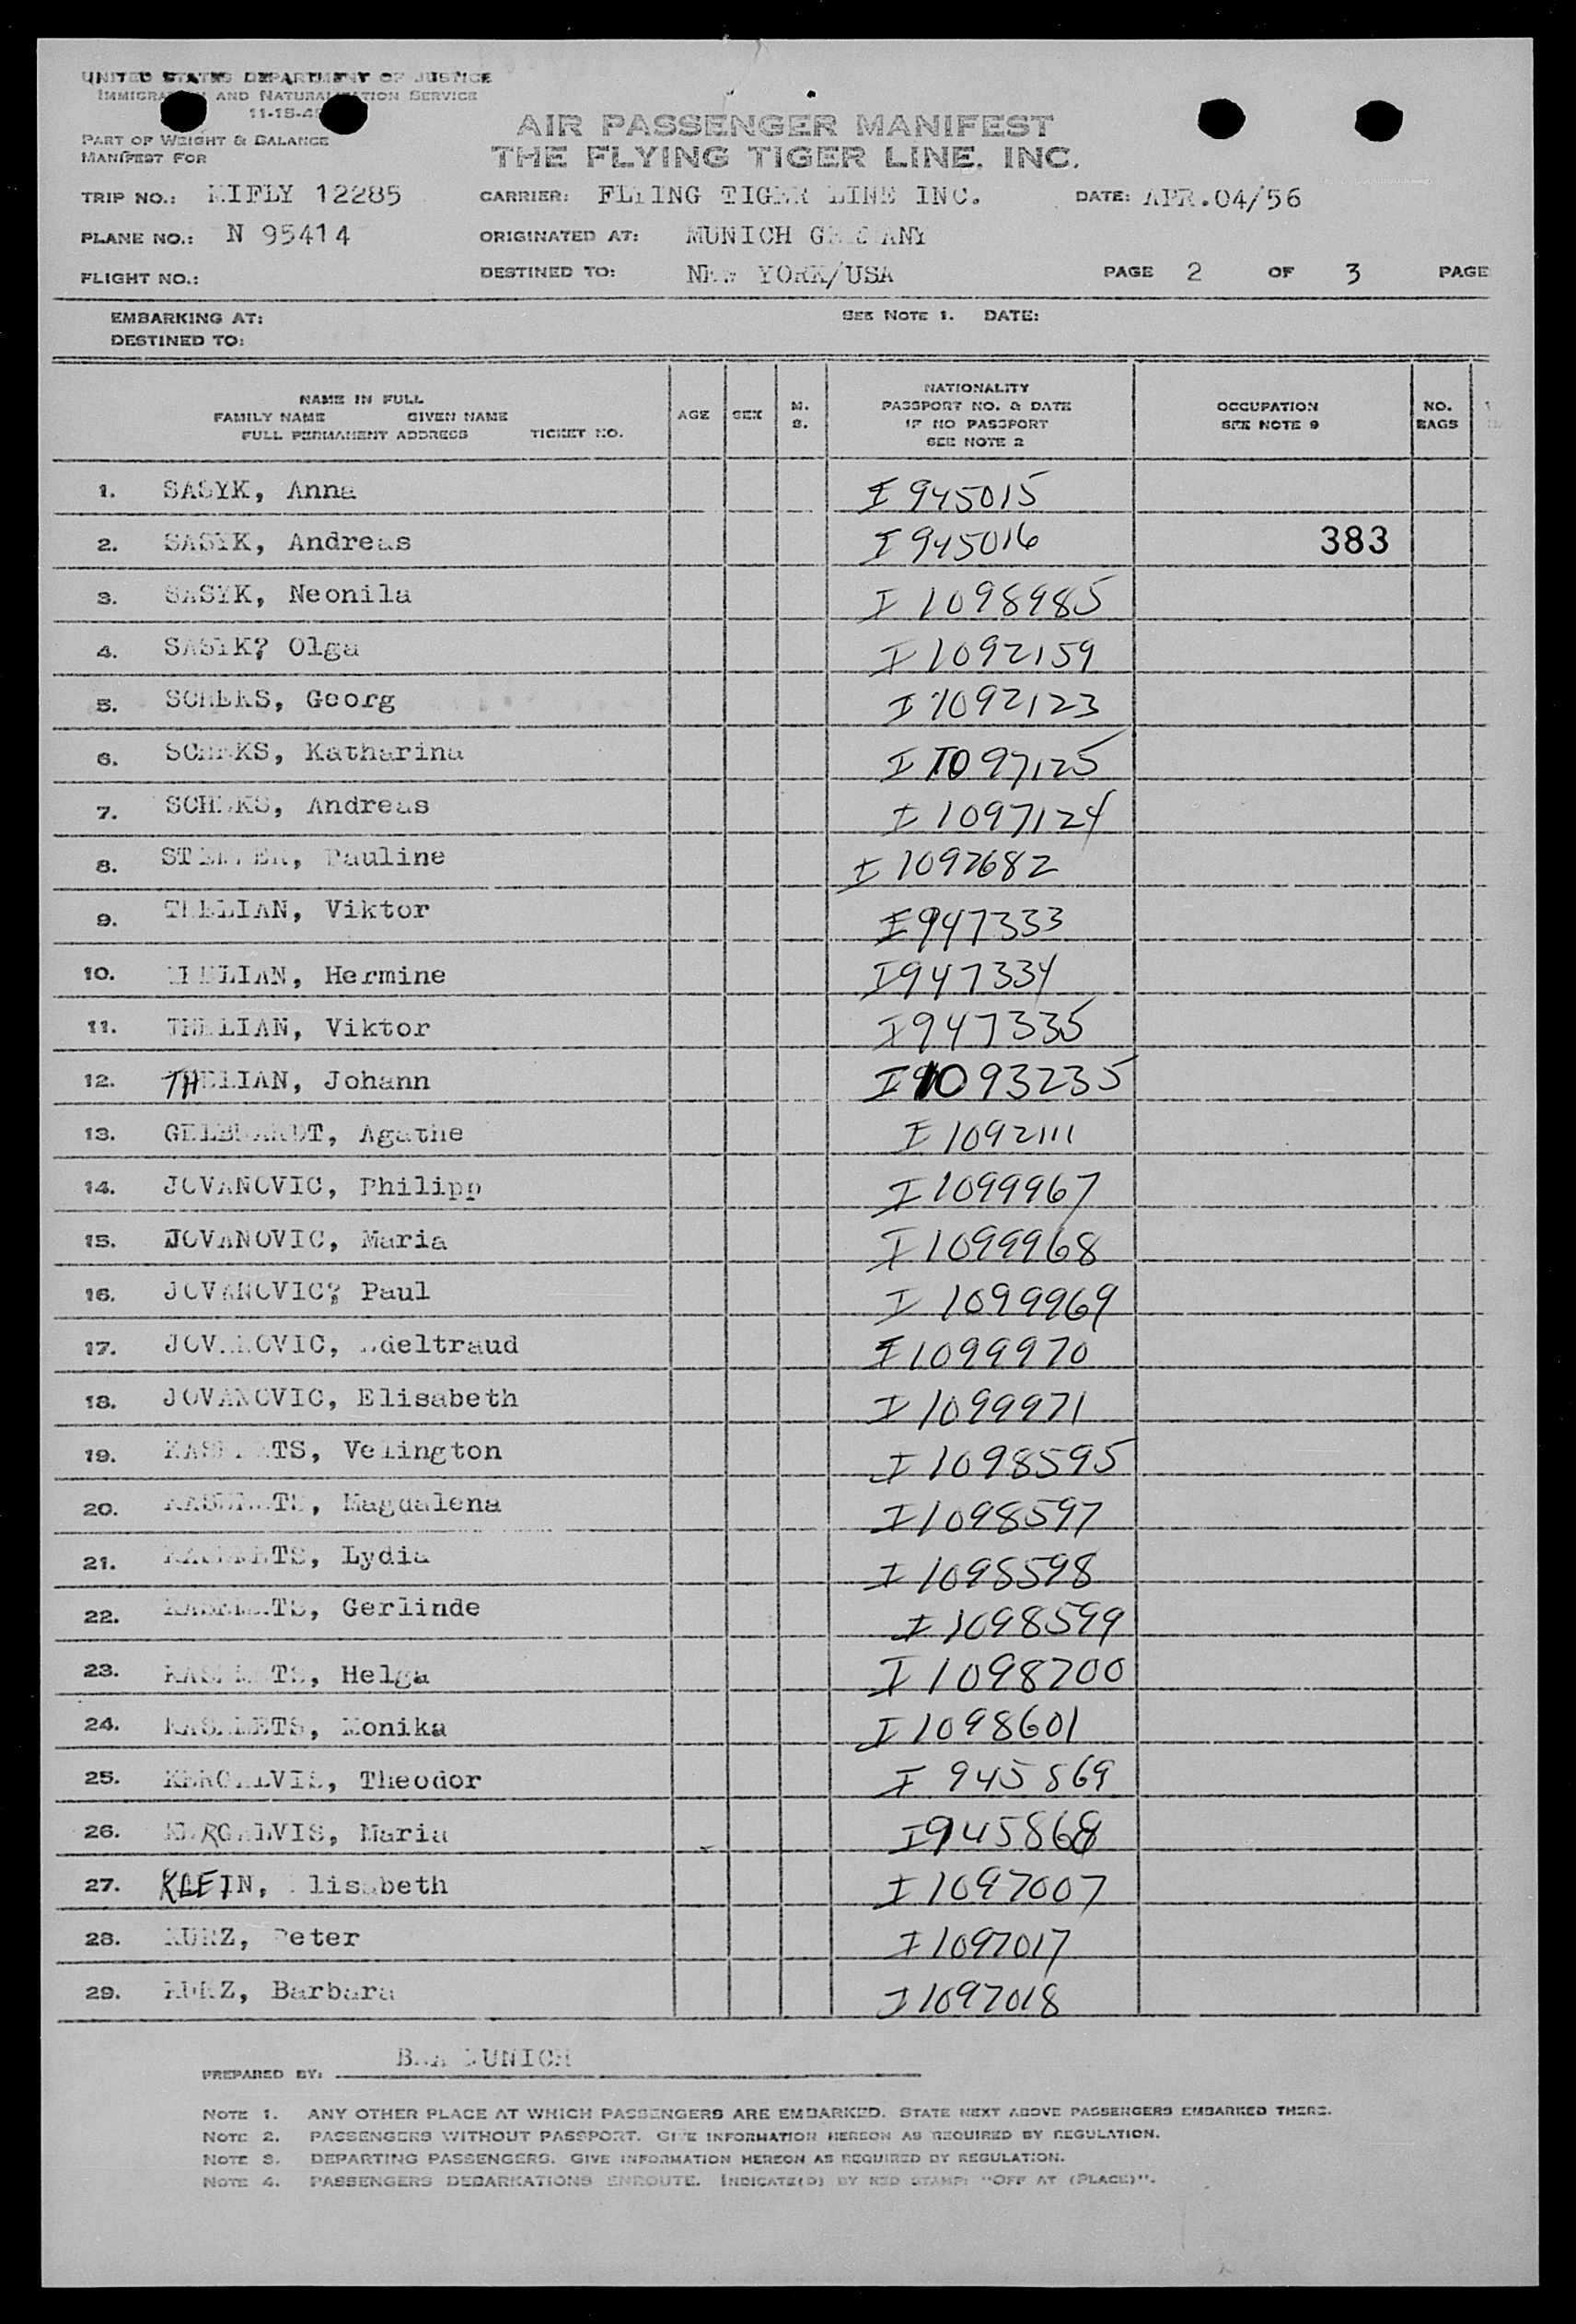 UNITED STATES DEPARTMENT OF JUSTICE
IMMIGRATION AND NATURALIZATION SERVICE
11-18-4
PART OF WEIGHT & BALANCE
MANIFEST FOR
AIR PASSENGER MANIFEST
THE FLYING TIGER LINE, INC.
TRIP NO.: MIFLY 12285 CARRIER: FLYING TIGER LINE INC. DATE: APR.04/56
PLANE NO.: N 95414 ORIGINATED AT: MUNICH GERMANY
FLIGHT NO.: DESTINED TO: NEW YORK/USA PAGE 2 OF 3 PAGE
EMBARKING AT: SEE NOTE 1. DATE:
DESTINED TO:
NAME IN FULL
FAMILY NAME GIVEN NAME
FULL PERMANENT ADDRESS TICKET NO.
AGE SEX M. S.
NATIONALITY
PASSPORT NO. & DATE
IF NO PASSPORT
SEE NOTE 2
OCCUPATION
SEE NOTE 9
NO.
BAGS
1. SASYK, Anna I 945015
2. SASYK, Andreas I 945016 383
3. SASYK, Neonila I 1098985
4. SASYK? Olga I 1092159
5. Georg I 1092123
6. Katharina I 1097125
7. Andreas I 1097124
8. Pauline I 1097682
9. THELIAN, Viktor I 947333
10. THELIAN, Hermine I 947334
11. THELIAN, Viktor I 947335
12. THELIAN, Johann I 1093235
13. Agathe I 1092111
14. JOVANOVIC, Philipp I 1099967
15. JOVANOVIC, Maria I 1099968
16. JOVANOVIC? Paul I 1099969
17. JOVANOVIC, Adeltraud I 1099970
18. JOVANOVIC, Elisabeth I 1099971
19. Velington I 1098595
20. Magdalena I 1098597
21. Lydia I 1098598
22. Gerlinde I 1098599
23. Helga I 1098700
24. Monika I 1098601
25. Theodor I 945869
26. Maria I 945868
27. KLEIN, Elisabeth I 1097007
28. KURZ, Peter I 1097017
29. KURZ, Barbara I 1097018
PREPARED BY: MUNICH
NOTE 1. ANY OTHER PLACE AT WHICH PASSENGERS ARE EMBARKED. STATE NEXT ABOVE PASSENGERS EMBARKED THERE.
NOTE 2. PASSENGERS WITHOUT PASSPORT. GIVE INFORMATION HEREON AS REQUIRED BY REGULATION.
NOTE 3. DEPARTING PASSENGERS. GIVE INFORMATION HEREON AS REQUIRED BY REGULATION.
NOTE 4. PASSENGERS DEBARKATIONS ENROUTE. INDICATE(D) BY RED STAMP: "OFF AT (PLACE)".